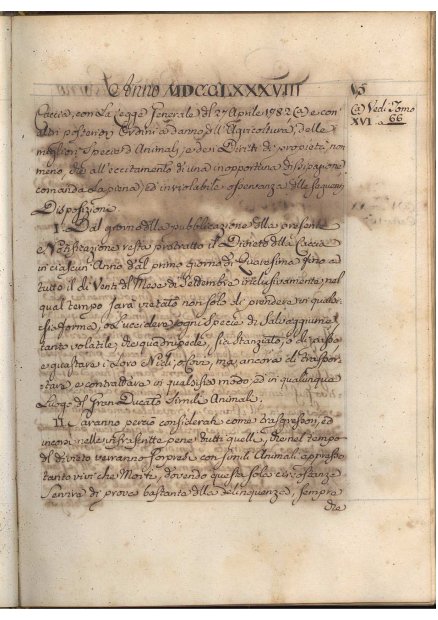 Anno MDCCLXXXVIII
15
(a) Vedi Tomo
XVI a 66
Caccia, con La Legge Generale dl 27 Aprile 1782 (a) e con
altri posteriori Ordini a danno dll' Agricoltura, delle
migliori Specie d Animali, e dei Diritti di propietà, non
meno, che all' eccitamento di una inopportuna dissipazione
comanda La piena, ed inviolabile osservanza dlle seguenti
Disposizioni
I. Dal giorno dlla pubblicazione dlla presente
Notificazione resta protratto il Divieto dlla Caccia
in ciascun' Anno dal primo giorno di Quaresima fino a
tutto il dì Venti dl Mese di Settembre inclusivamente, nel
qual tempo sarà vetato non solo di prendere in qualsi-
sia forma, od uccidere ogni Specie di Salvaggiume
tanto volatile che quadrupede, sia stanziato, o di passo
e guastare i Loro Nidi, o Covi, ma ancora di traspor-
tare e contrattare in qualsisia modo, ed in qualunque
Luogo dl Gran Ducato Simili Animali.
II. Saranno perciò considerati come trasgressori, ed
incorsi nelle infrascritte pene tutti quelli, che nel tempo
dl divieto verranno sorpresi con simili Animali appresso
tanto vivi che Morti, dovendo questa sola circostanza
Servire di prova bastante dlla delinquenza, sempre
che